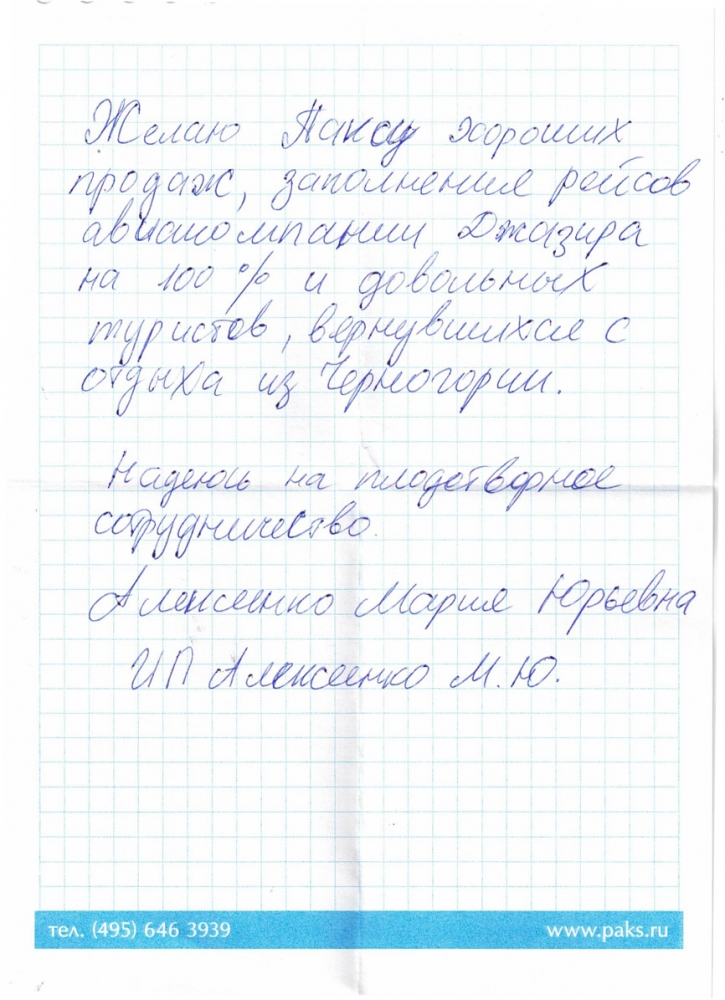 Желаю Паксу хороших
продаж, заполнения рейсов
авиакомпании Джазира
на 100 % и довольных
туристов, вернувшихся с
отдыха из Черногории.
Надеюсь на плодотворное
сотрудничество.
Алексеенко Мария Юрьевна
ИП Алексеенко М.Ю.
тел. (495) 646 3939
www.paks.ru